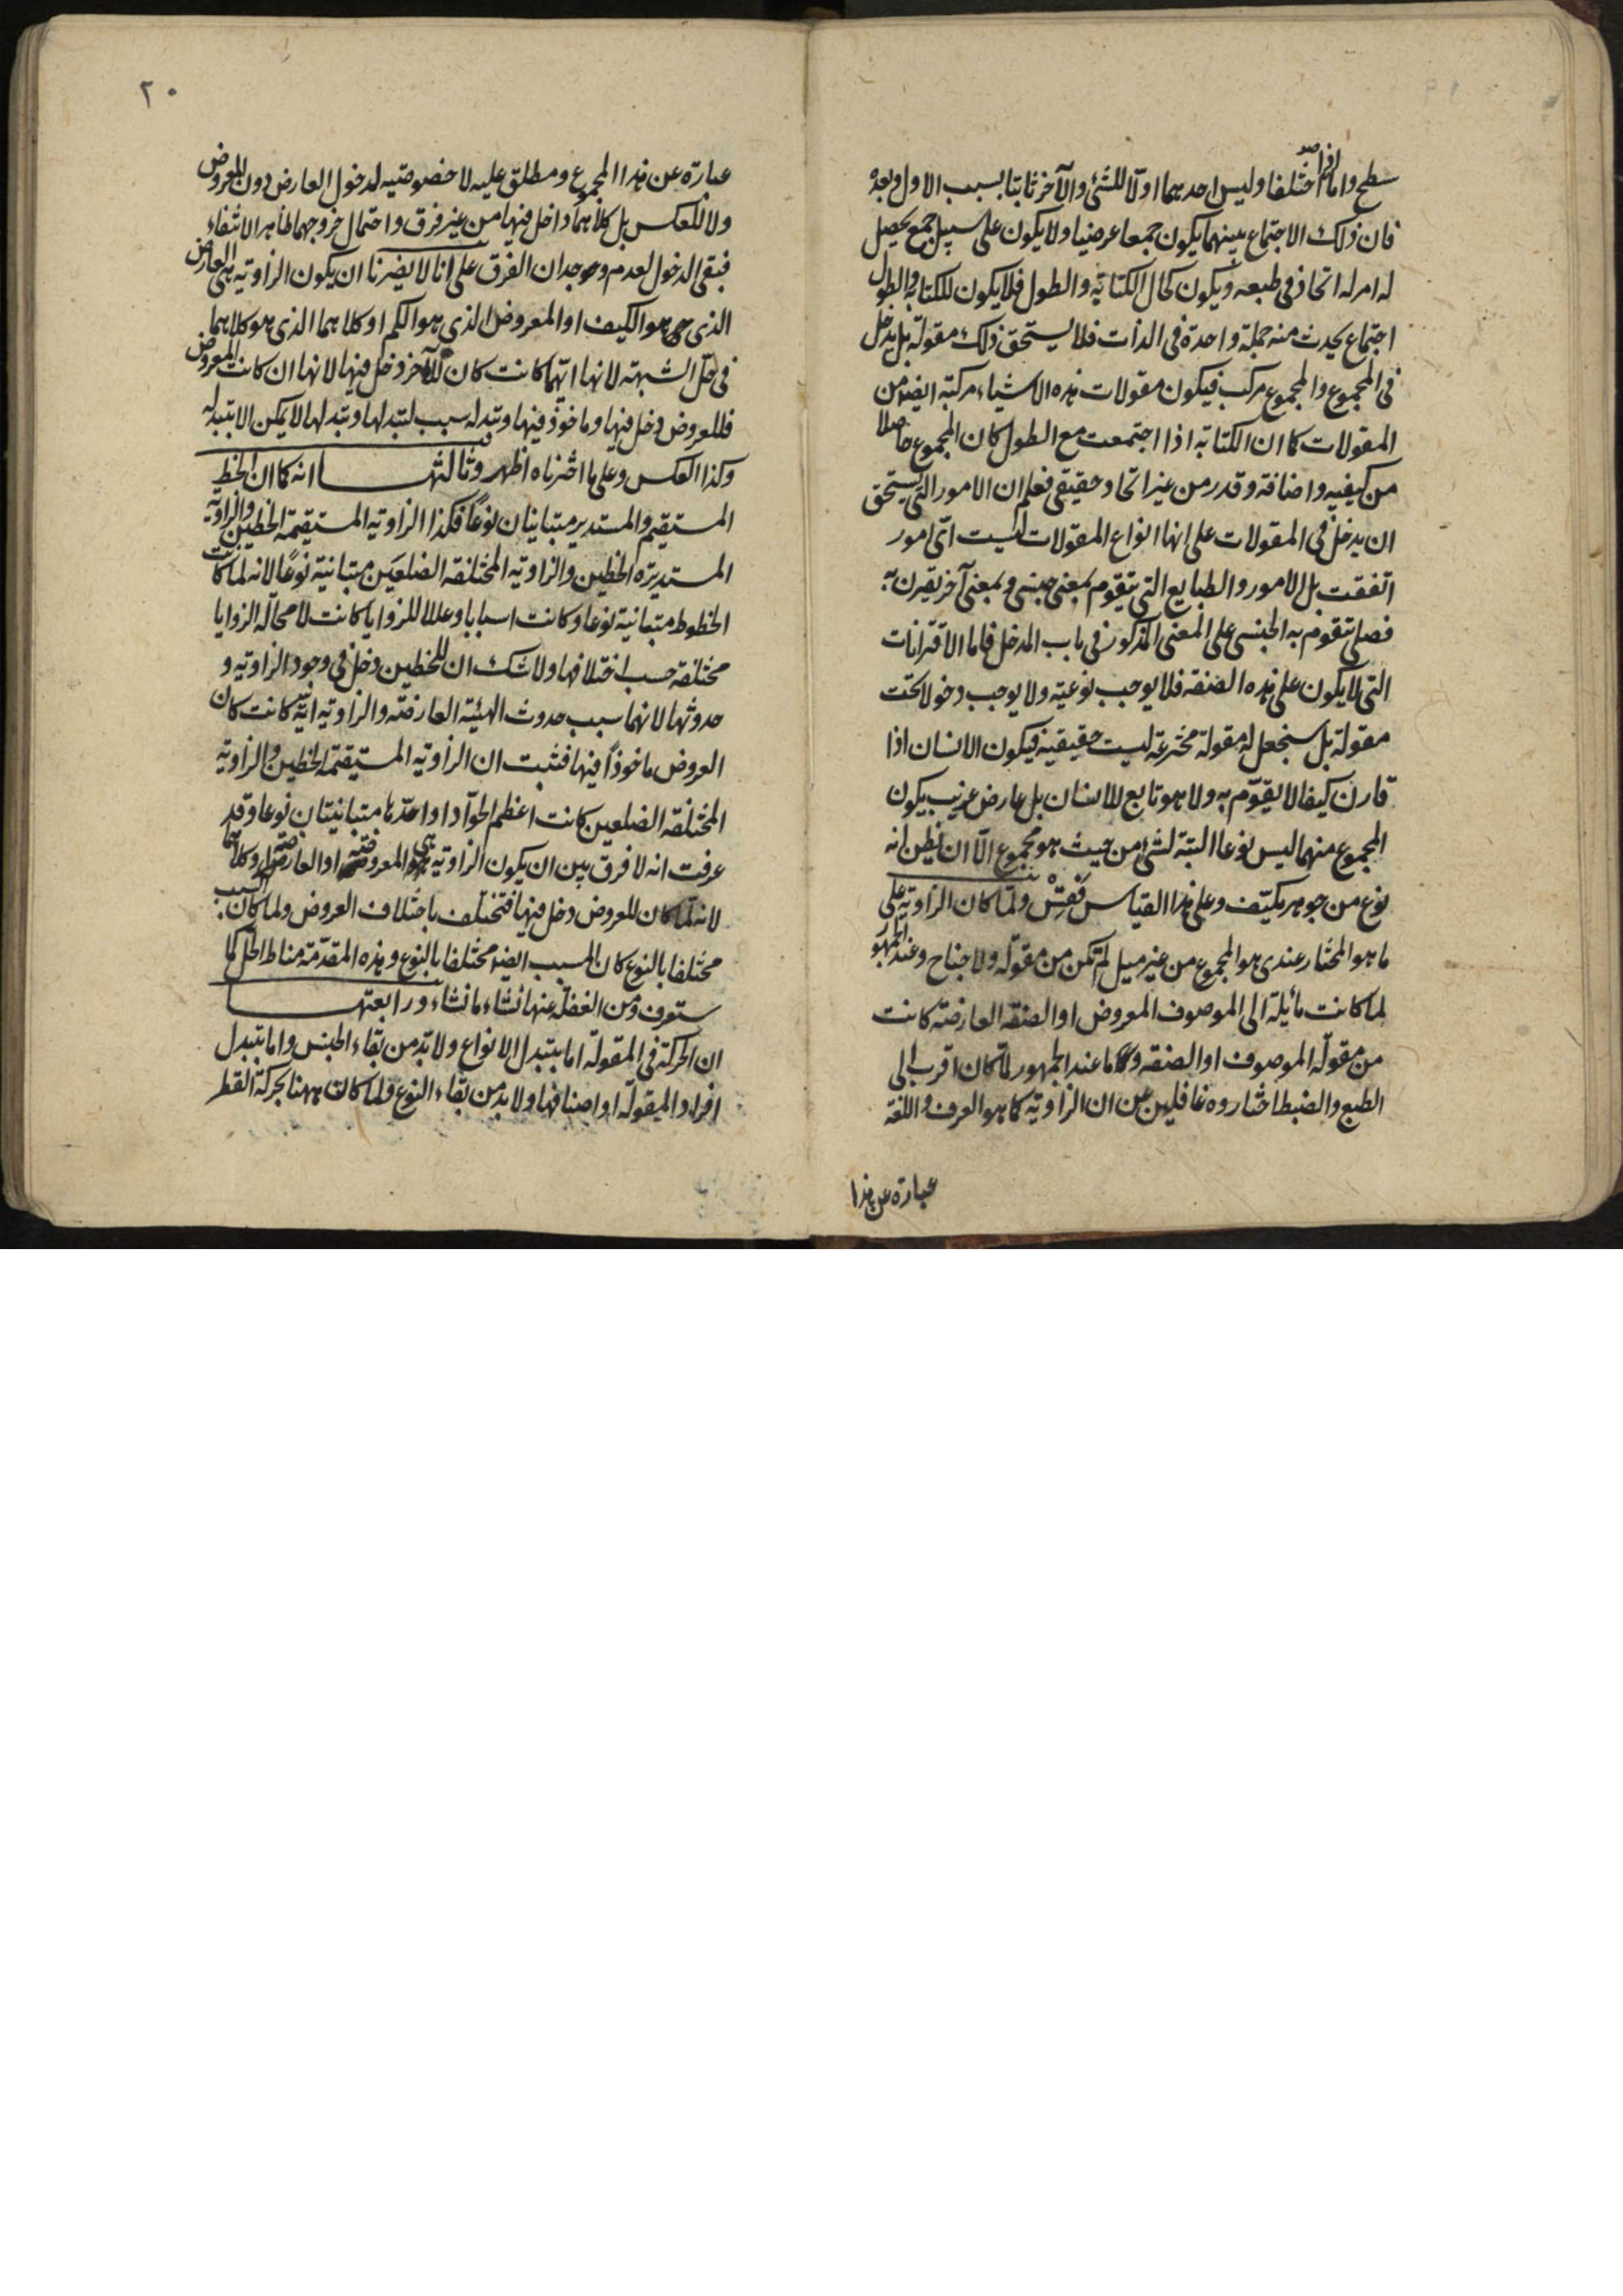 سطح واما اذا اختلفا وليس احدهما اولا للشئ والآخر ثابتا بسبب الاول وبعده
فان ذلك الاجتماع بينهما يكون جمعا عرضيا ولا يكون على سبيل جمع يحصل
له امر له اتحاد في طبعه ويكون كحال الكتابة والطول فلا يكون للكتابة والطول
اجتماع يحدث منه جملة واحدة في الذات فلا يستحق ذلك مقولة بل يدخل
في المجموع والمجموع مركب فيكون مقولات هذه الاشياء مركبة ايضا من
المقولات كما ان الكتابة اذا اجتمعت مع الطول كان المجموع حاصلا
من كيفيه واضافة وقدر من غير اتحاد حقيقى فعلم ان الامور التى يستحق
ان يدخل في المقولات على انها انواع المقولات ليست اىّ امور
اتفقت بل الامور والطبايع التى يتقوم بمعنى جنسى وبمعنى آخر يقترن به
فصلى تتقوم به الجنسى على المعنى المذكور في باب المدخل فاما الاقترانات
التى لا يكون على هذه الصفه فلا يوجب نوعية ولا يوجب دخولا تحت
مقولة بل سنجعل له مقولة مخترعة ليست حقيقية فيكون الانسان اذا
قارن كيفا لا يقوّم به ولا هو تابع للانسان بل عارض غريب يكون
المجموع منهما ليس نوعا البتة لشئ من حيث هو مجموع الّا ان يظن انه
نوع من جوهر مكيّف وعلى هذا القياس فَفتّشْ ولمّا كان الزاوية على
ما هو المختار عندى هو المجموع من غير ميل لم تكن من مقوله ولا جناح وعند الجمهور
لما كانت مائلة الى الموصوف المعروض او الصفه العارضة كانت
من مقولة الموصوف او الصفه وما عند الجمهور لما كان اقرب الى
الطبع والضبط اختاروه غافلين عن ان الزاوية كما هو العرف واللغه
عبارة عن هذا
٢٠
عبارة عن هذا المجموع ومطلق عليه لا خصوصيه لدخول العارض دون المعروض
ولا بالعكس بل كلاهما داخل فيها من غير فرق واحتمال خروجهما ظاهر الانتفاء
فبقى الدخول لعدم وجدان الفرق على انا لا يضرنا ان يكون الزاويه هى العارض
الذى هو الكيف او المعروض الذى هو الكم او كلاهما الذى هو كلاهما
في حل الشبهة لانها ايّهما كانت كان للآخر دخل فيها لانها ان كانت المعروض
فللعروض دخل فيها وماخوذ فيها وتبدله سبب لتبدلها وتبدلها لا يمكن الا بتبدله
وكذا العكس وعلى ما اخترناه اظهر وثالثتها انه كما ان الخط
المستقيم والمستدير متباينان نوعاً فكذا الزاويه المستقيمة الخطين والزاوية
المستديرة الخطين والزاويه المختلفة الضلعين متباينة نوعًا لانه لما كانت
الخطوط متباينة نوعا وكانت اسبابا وعللا للزوايا كانت لا محالة الزوايا
مختلفة حسب اختلافها ولا شك ان للخطين دخل في وجود الزاوية و
حدوثها لانهما سبب حدوث الهيئة العارضة والزاويه ايّة كانت كان
العروض ماخوذاً فيها فثبت ان الزاويه المستقيمة الخطين والزاوية
المختلفة الضلعين كانت اعظم الحوادّ او احدّها متباينتان نوعا وقد
عرفت انه لا فرق بين ان يكون الزاوية هى المعروضة او العارضة او كلاهما
لانه لمّا كان للعروض دخل فيها فتختلف باختلاف العروض ولما كان السبب
مختلفا بالنوع كان المسبب ايضا مختلفا بالنوع وهذه المقدّمة مناط الحل كما
ستعرف ومن الغفلة عنها نشاء ما نشاء ورابعتها
ان الحركة في المقولة اما بتبدل الانواع ولا بدّ من بقاء الجنس واما بتبدل
افراد المقولة او اصنافها ولا بد من بقاء النوع ولما كانت ههنا بحركة القطر